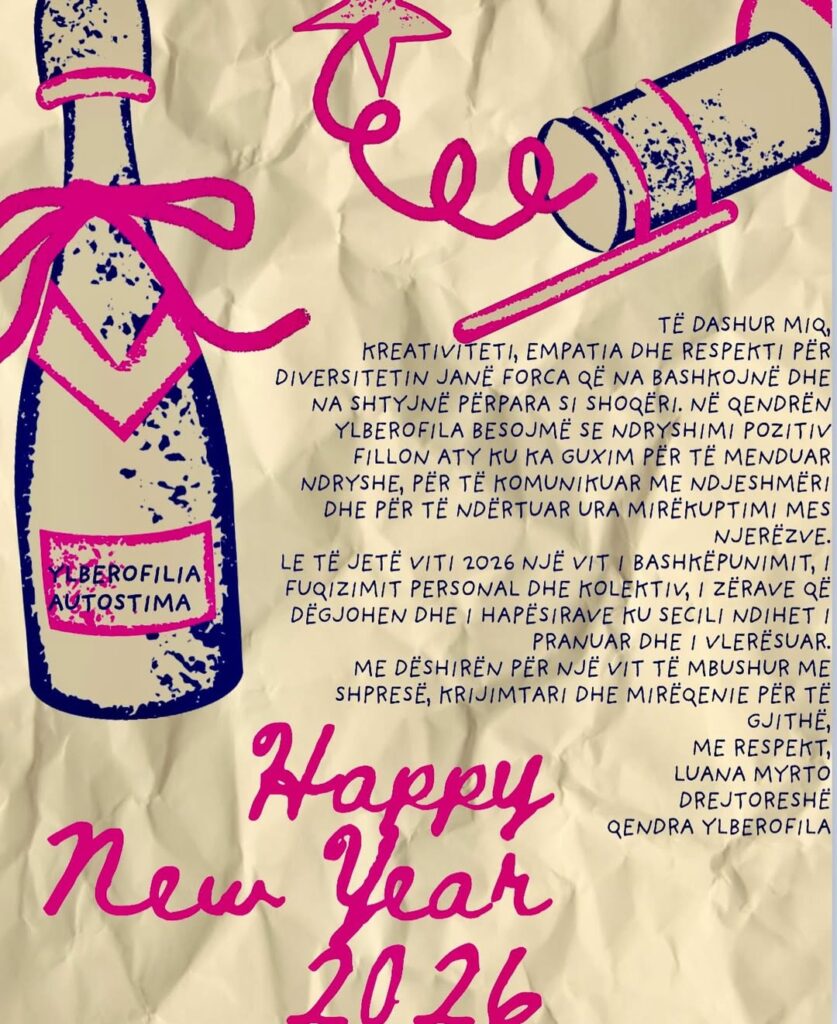 TË DASHUR MIQ,
KREATIVITETI, EMPATIA DHE RESPEKTI PËR
DIVERSITETIN JANË FORCA QË NA BASHKOJNË DHE
NA SHTYJNË PËRPARA SI SHOQËRI. NË QENDRËN
YLBEROFILA BESOJMË SE NDRYSHIMI POZITIV
FILLON ATY KU KA GUXIM PËR TË MENDUAR
NDRYSHE, PËR TË KOMUNIKUAR ME NDJESHMËRI
DHE PËR TË NDËRTUAR URA MIRËKUPTIMI MES
NJERËZVE.
LE TË JETË VITI 2026 NJË VIT I BASHKËPUNIMIT, I
FUQIZIMIT PERSONAL DHE KOLEKTIV, I ZËRAVE QË
DËGJOHEN DHE I HAPËSIRAVE KU SECILI NDIHET I
PRANUAR DHE I VLERËSUAR.
ME DËSHIRËN PËR NJË VIT TË MBUSHUR ME
SHPRESË, KRIJIMTARI DHE MIRËQENIE PËR TË
GJITHË,
ME RESPEKT,
LUANA MYRTO
DREJTORESHË
QENDRA YLBEROFILA
YLBEROFILIA
AUTOSTIMA
Happy
New Year
2026